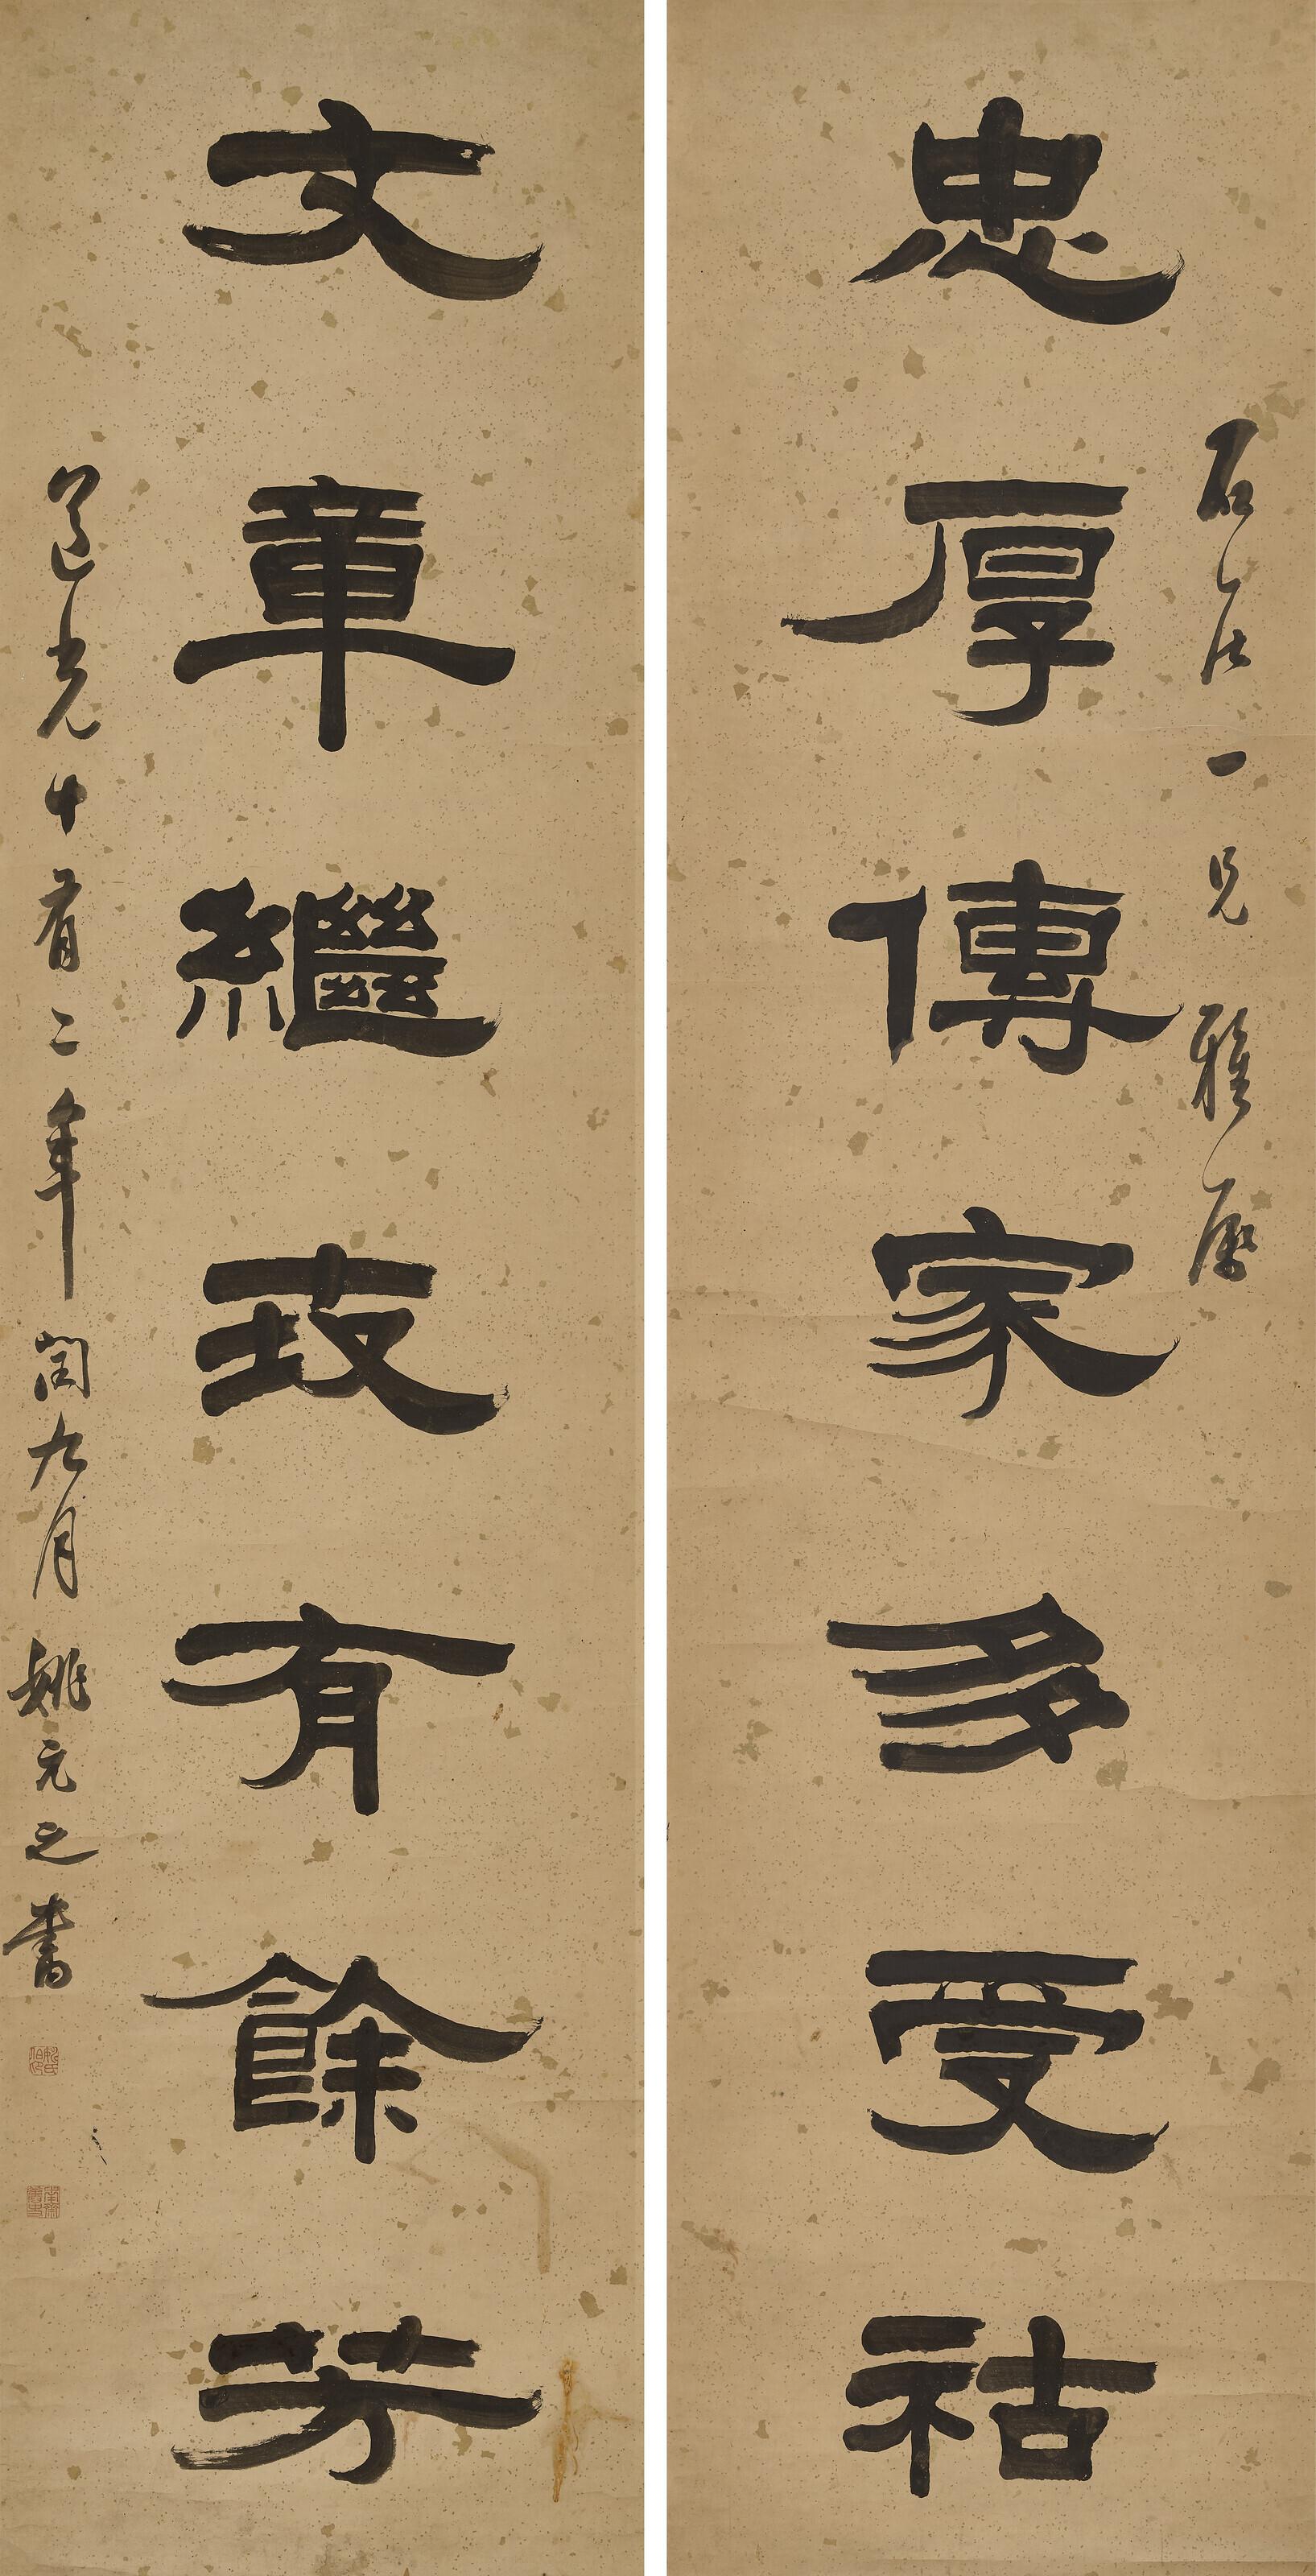 石一兄雅屬
忠厚傳家多受祜
文章繼武有餘芳
道光十有二年閏九月姚元之書